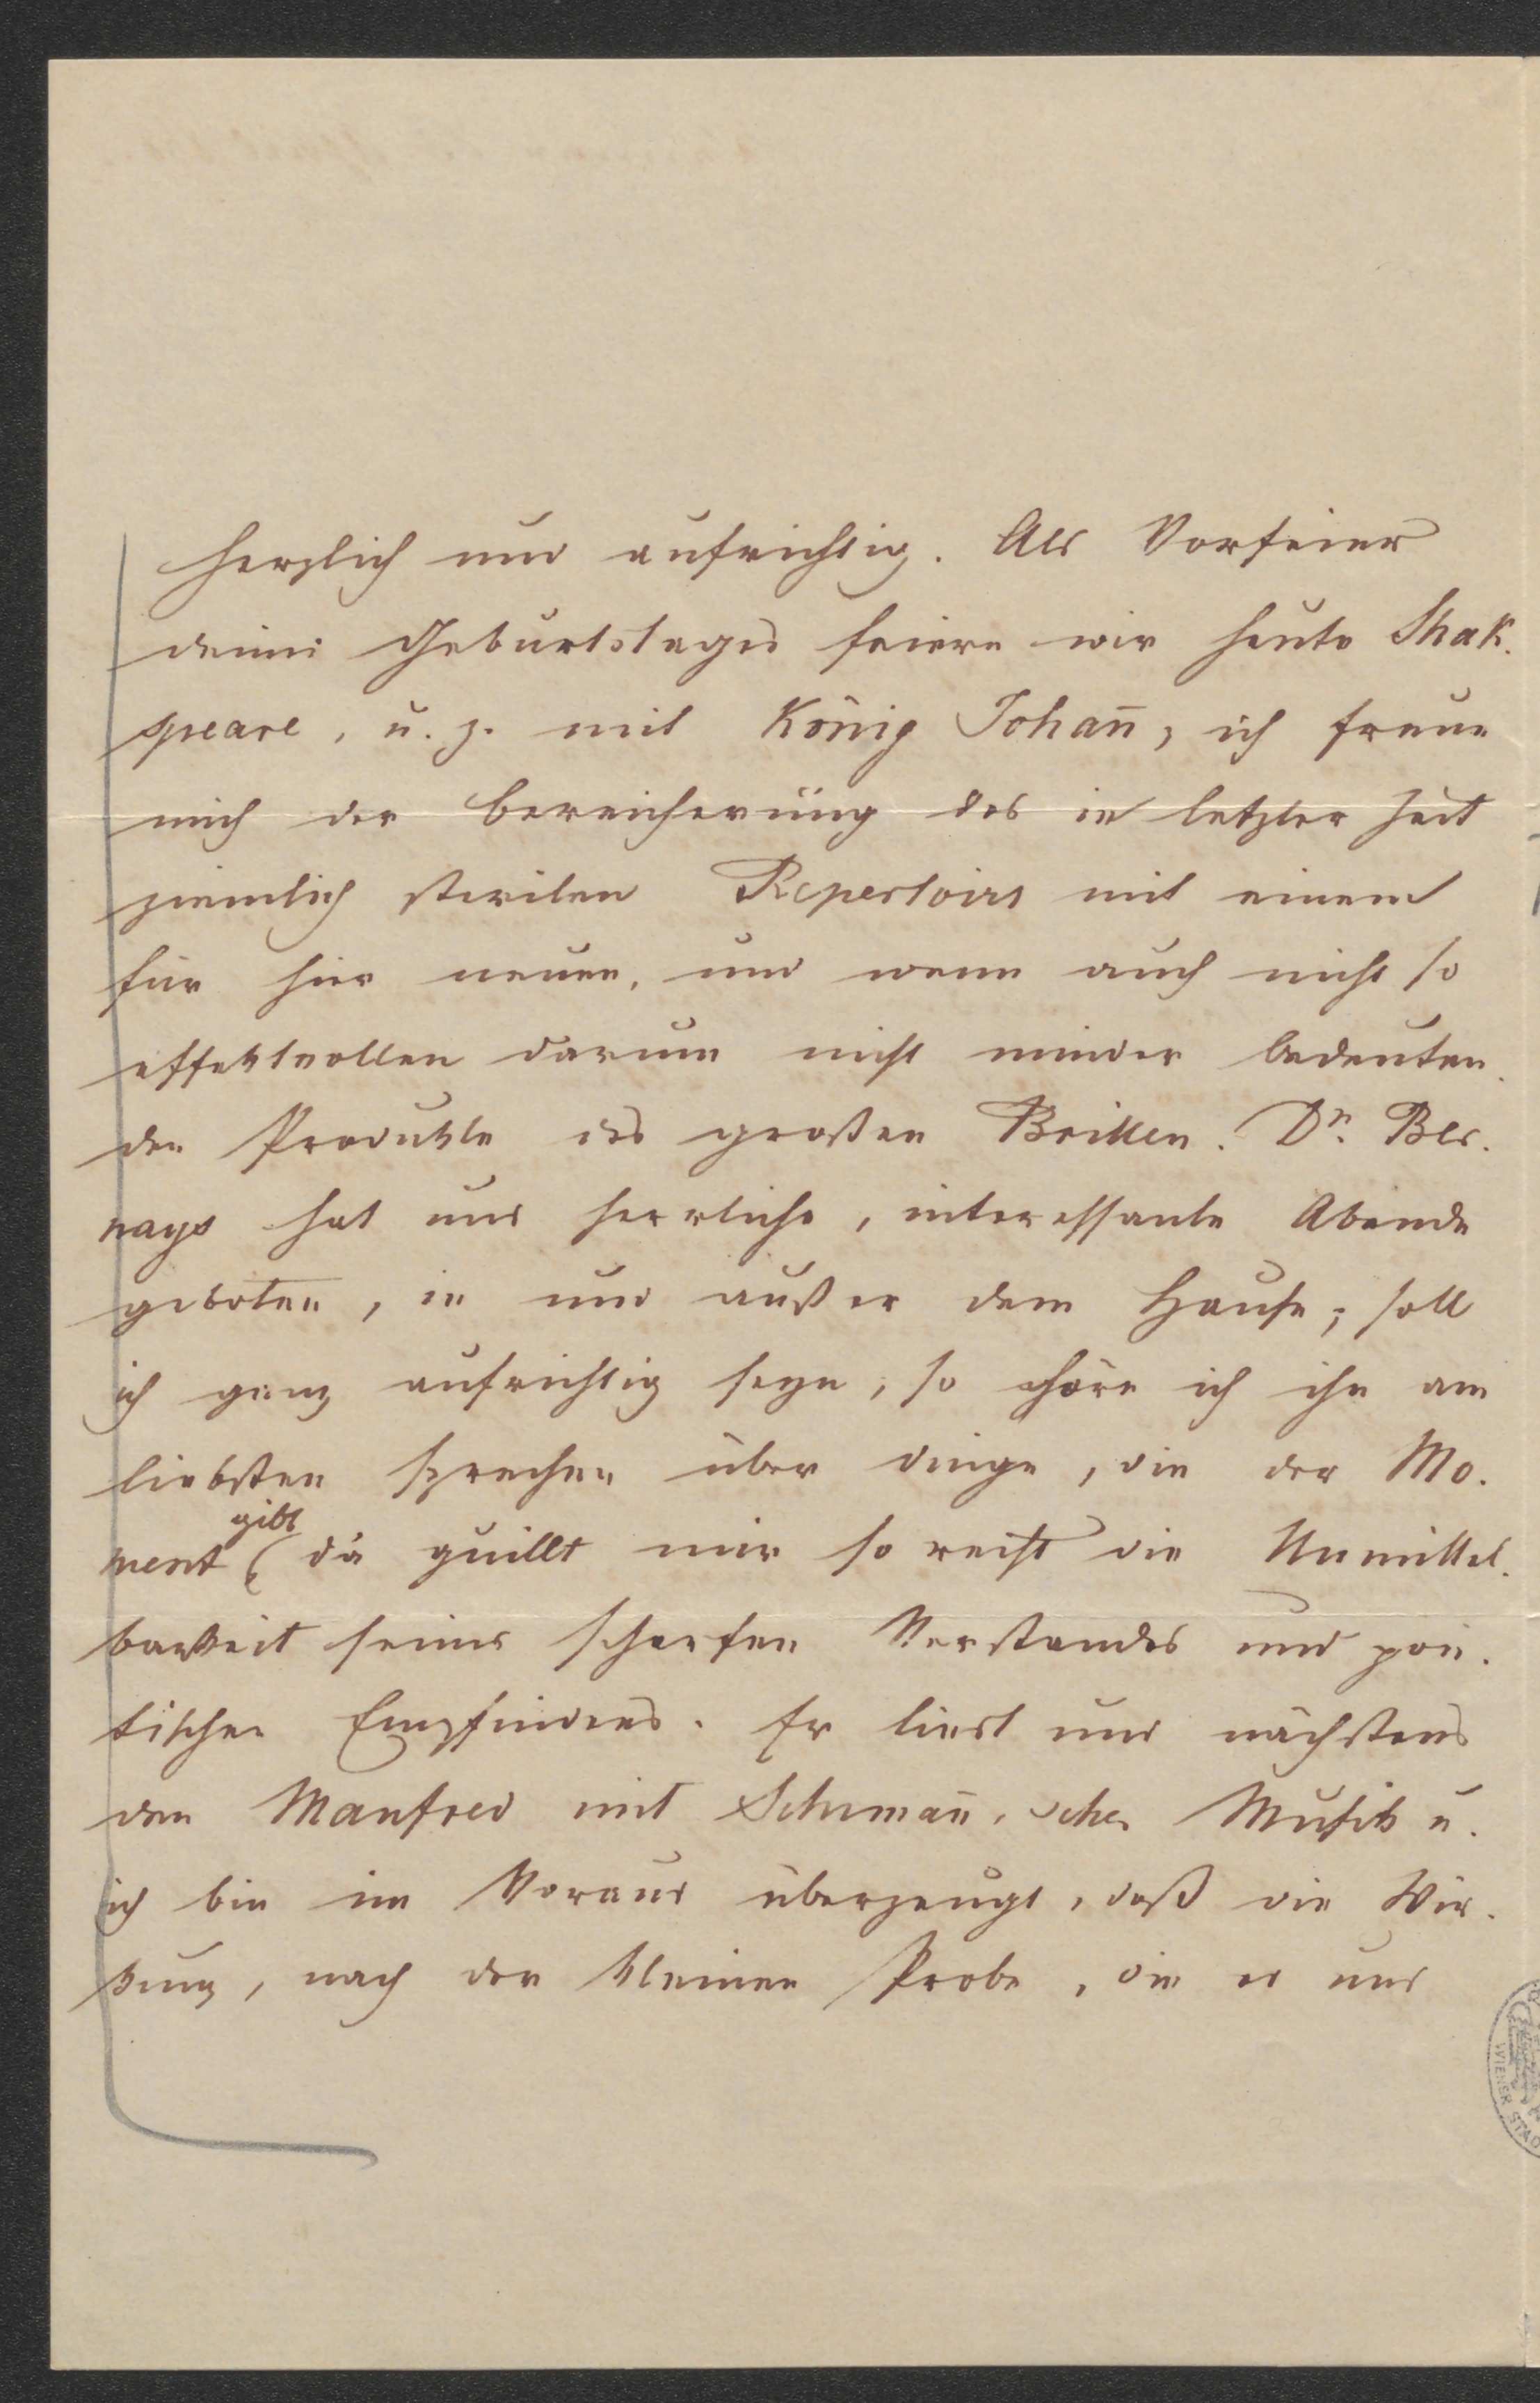 herzlich und aufrichtig. Als Vorfeier
deines Geburtstages feiern wir heute Shak.
speare, u. z. mit König Johan̄, ich freue
mich der Bereicherung des in letzter Zeit
ziemlich sterilen Repertoirs mit einem
für hier neuen, und wenn auch nicht so
effektvollen darum nicht minder bedeuten.
den Produkte des großen Britten. Dr. Ber.
nays hat uns herrliche, interessante Abende
geboten, in und außer dem Hause; soll
ich ganz aufrichtig seyn, so höre ich ihn am
liebsten sprechen über Dinge, die der Mo.
gibt
ment ( da quillt mir so recht die Unmittel.
barkeit seines scharfen Verstandes und poe.
tischen Empfindens. Er liest uns nächstens
den Manfred mit Schuman̄'scher Musik u.
ich bin im Voraus überzeugt, daß die Wir.
kung, nach der kleinen Probe, die er uns
WIENER STAD